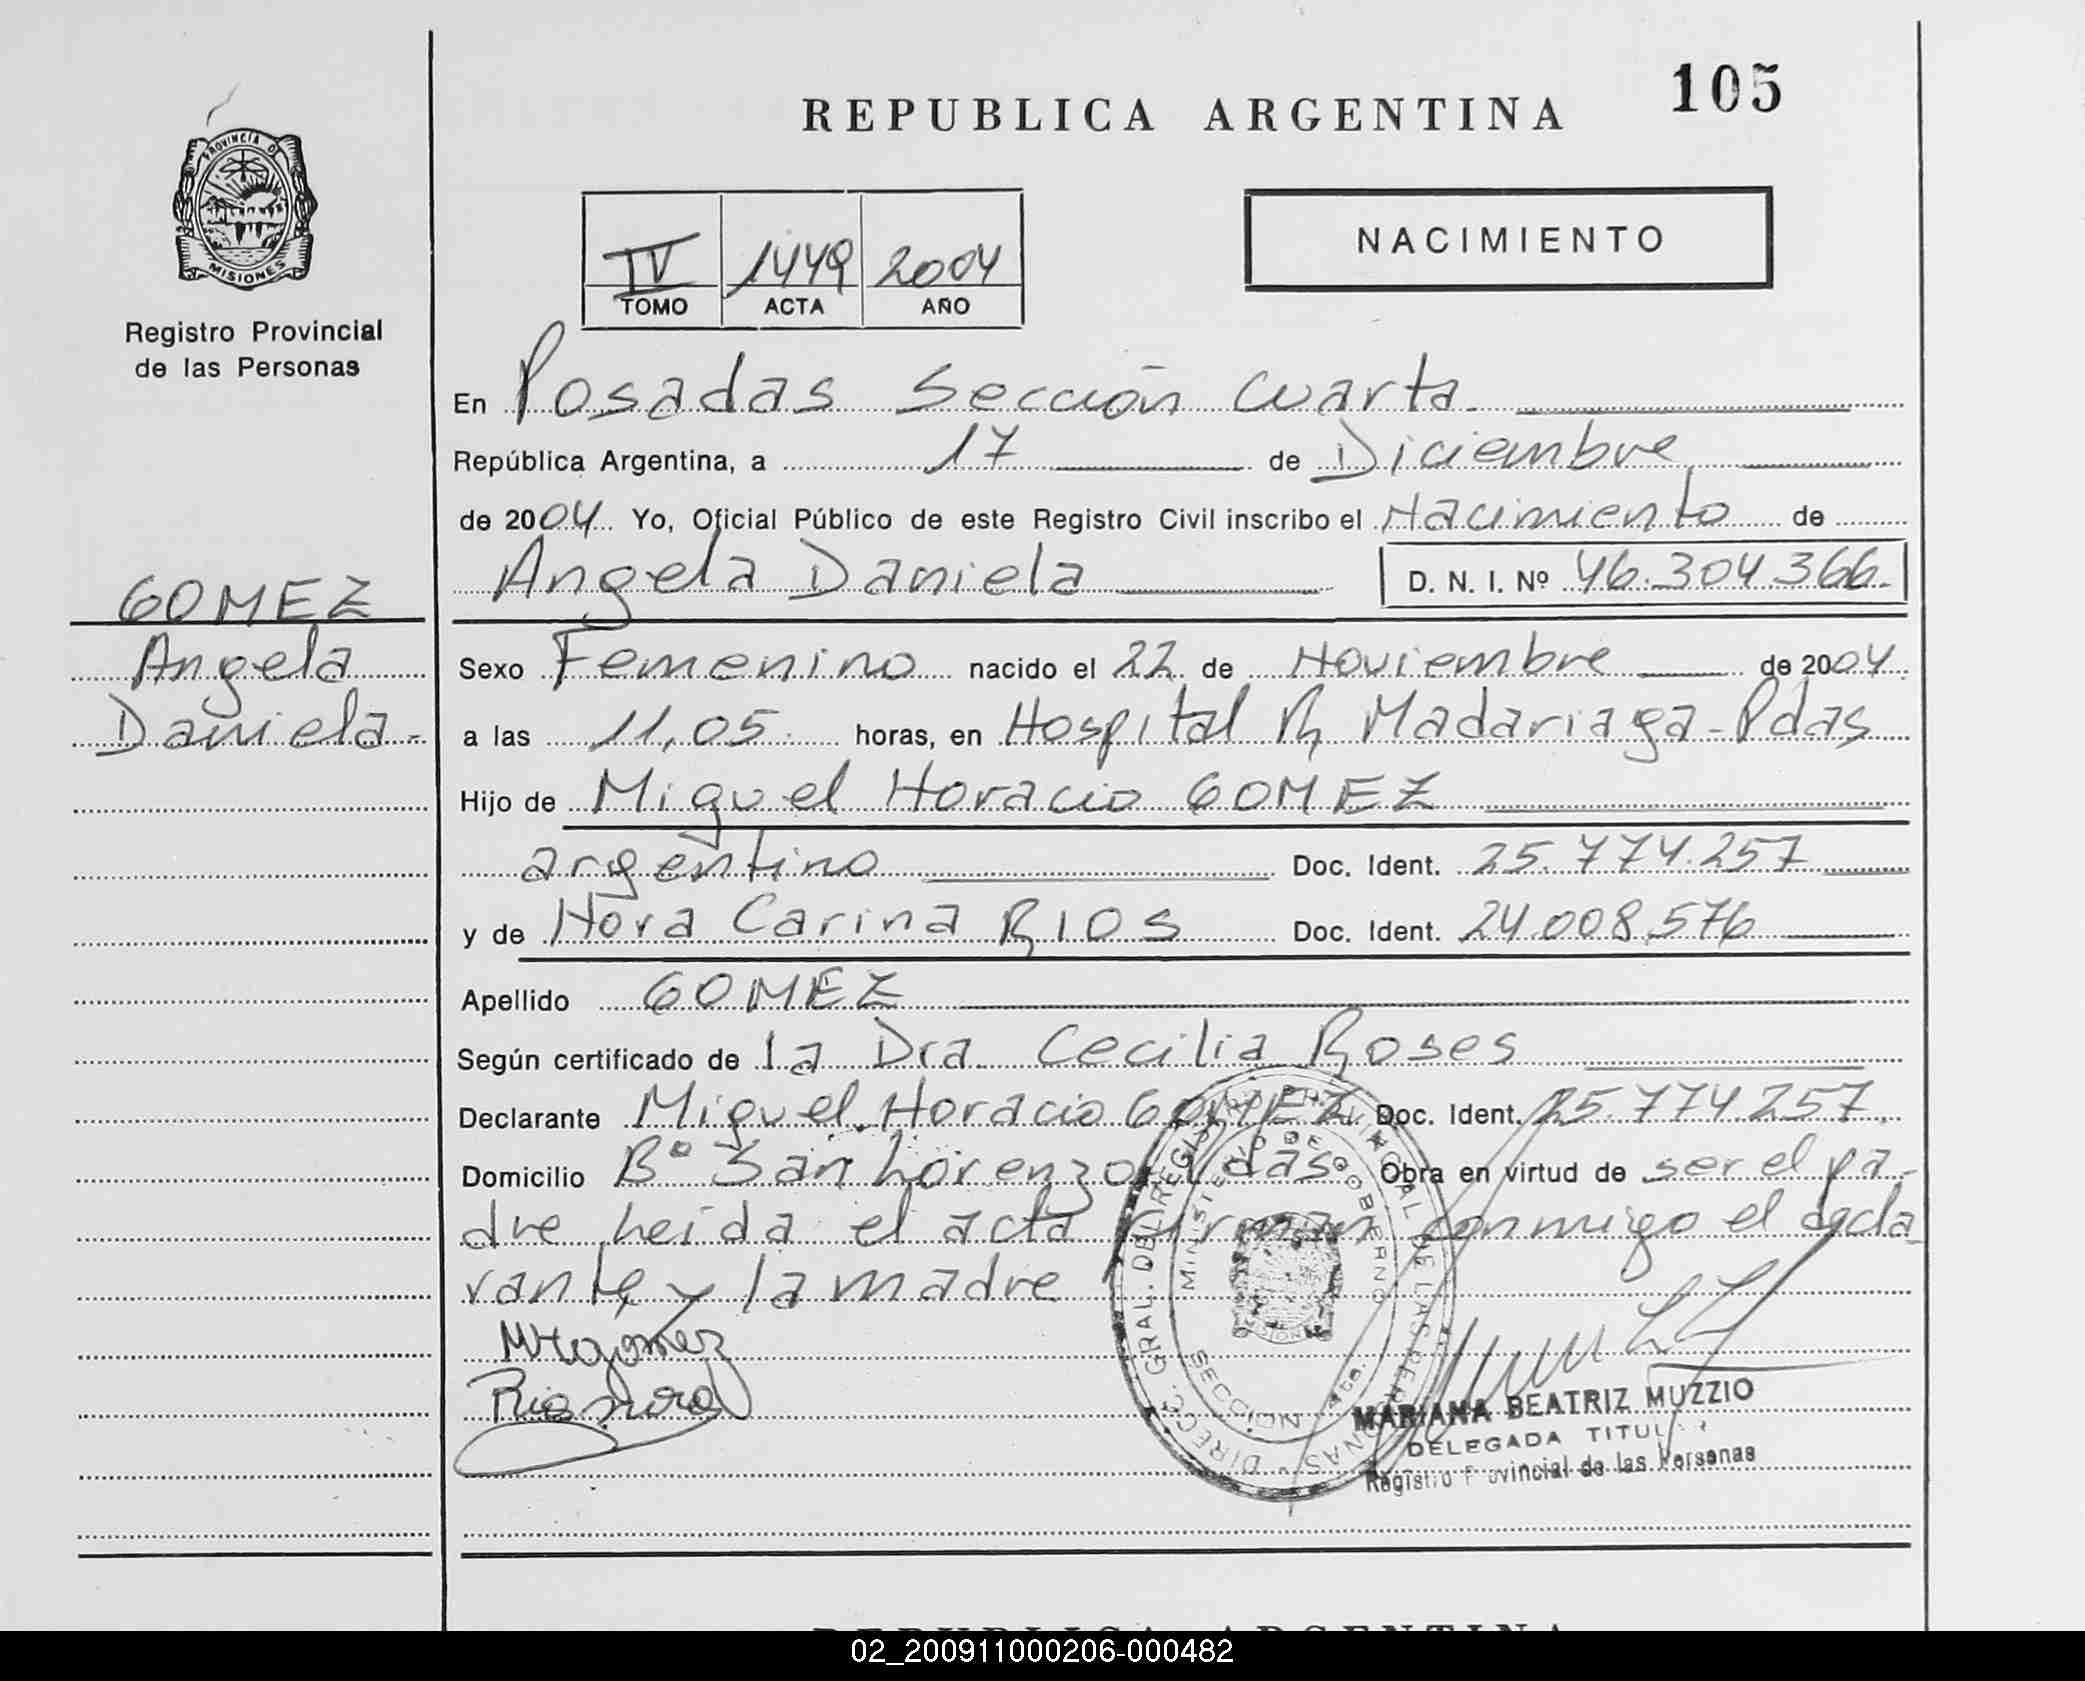 105
REPUBLICA ARGENTINA
PROVINCIA D
MISIONES
Registro Provincial
de las Personas
NACIMIENTO
IV 1449 2004
TOMO ACTA AÑO
En Posadas Sección Cuarta
República Argentina, a 17 de Diciembre
de 2004 Yo, Oficial Público de este Registro Civil inscribo el Nacimiento de
Angela Daniela D. N. I. Nº 46.304.366
GOMEZ
Angela
Daniela
Sexo Femenino nacido el 22 de Noviembre de 2004
a las 11,05 horas, en Hospital R, Madariaga-Pdas
Hijo de Miguel Horacio GOMEZ
argentino Doc. Ident. 25.774.257
y de Nora Carina RIOS Doc. Ident. 24.008.576
Apellido GOMEZ
Según certificado de la Dra. Cecilia Roses
Declarante Miguel Horacio GOMEZ Doc. Ident. 25.774.257
Domicilio Bº San Lorenzo Pdas. Obra en virtud de ser el pa-
dre leída el acta firman conmigo el decla-
rante y la madre
MHGómez
Rios Nora
DIRECC. GRAL. DEL REGISTRO PROVINCIAL DE LAS PERSONAS
MINISTERIO DE GOBIERNO
SECCION 4ta.
MARIANA BEATRIZ MUZZIO
DELEGADA TITUL
Registro Provincial de las Personas
REPUBLICA ARGENTINA
02_200911000206-000482